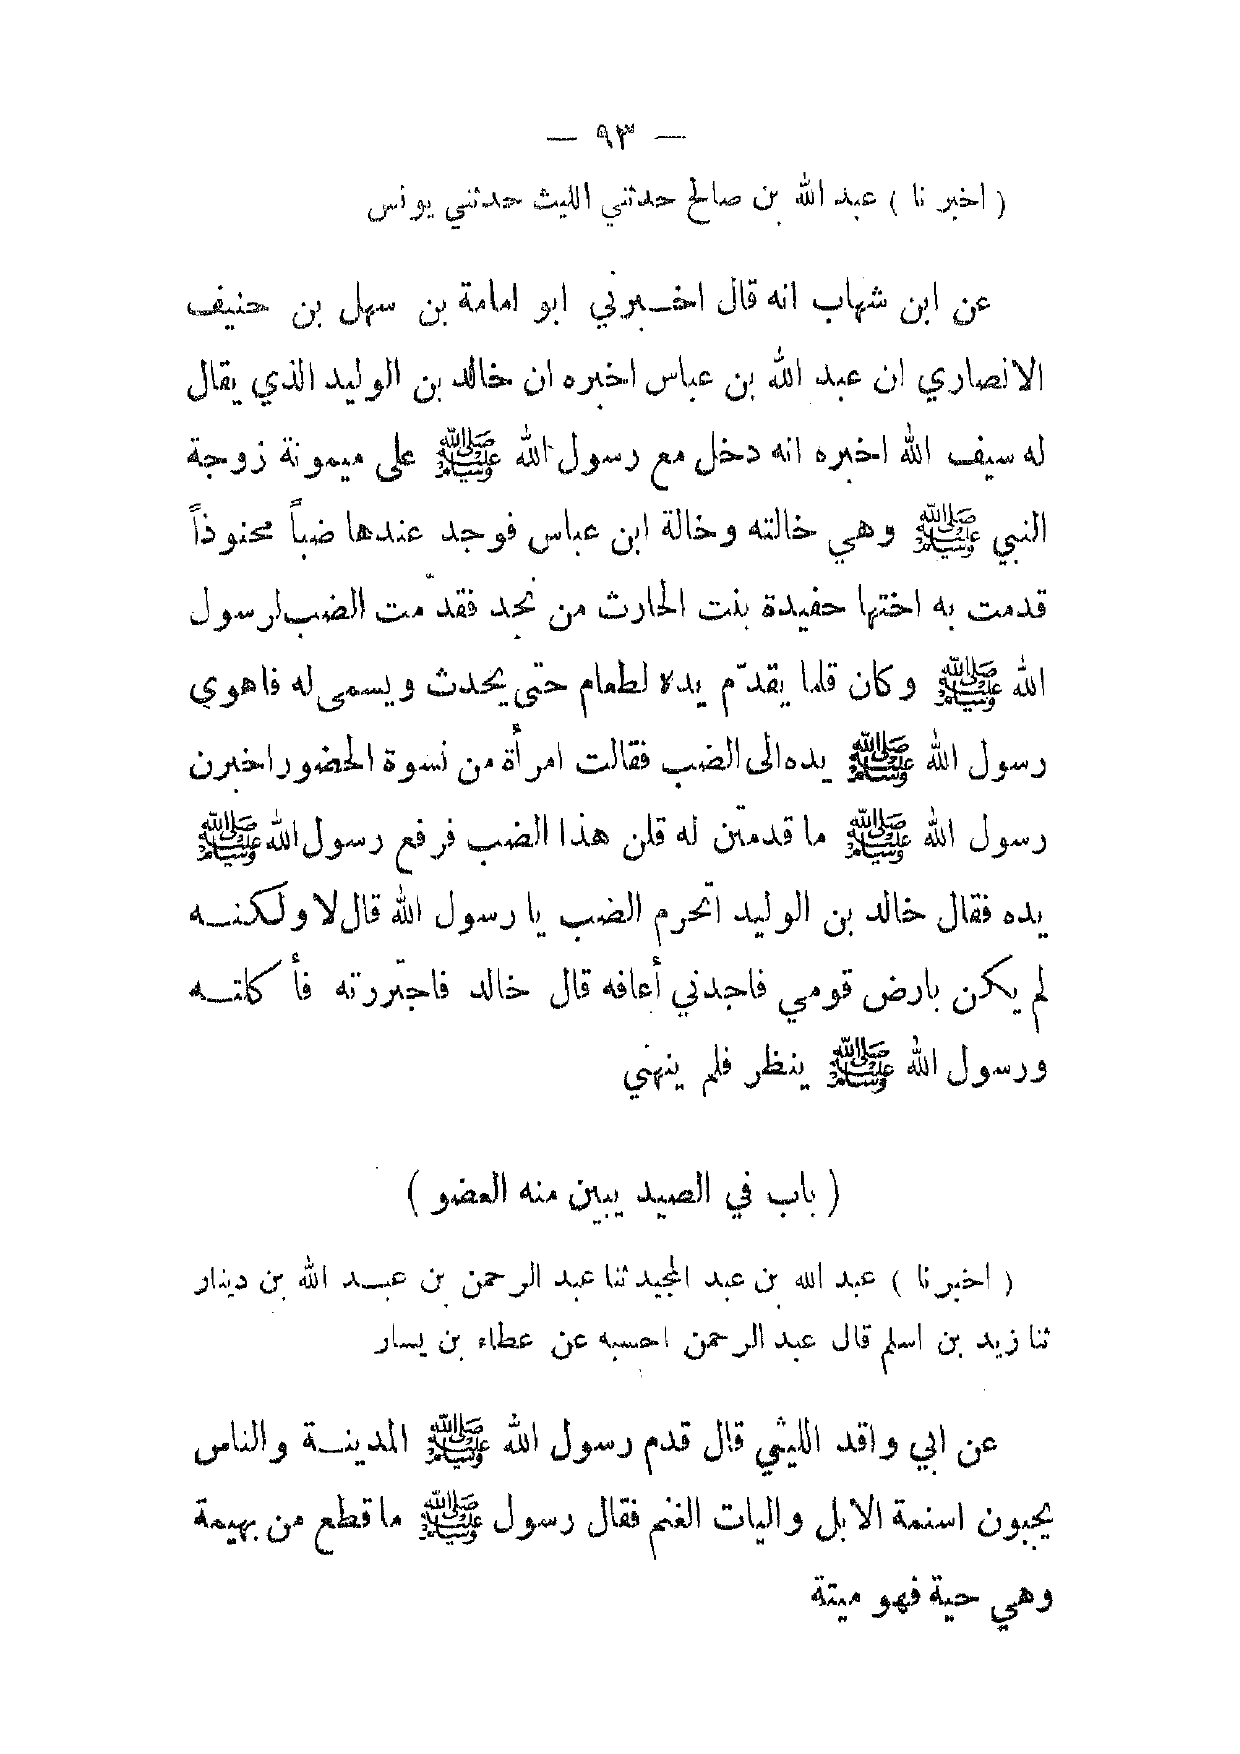 — ٩٣ —
( اخبرنا ) عبد الله بن صالح حدثني الليث حدثني يونس
عن ابن شهاب انه قال اخـبرني ابو امامة بن سهل بن حنيف
الانصاري ان عبد الله بن عباس اخبره ان خالد بن الوليد الذي يقال
له سيف الله اخبره انه دخل مع رسول الله ﷺ على ميمونة زوجة
النبي ﷺ وهي خالته وخالة ابن عباس فوجد عندها ضباً محنوذاً
قدمت به اختها حفيدة بنت الحارث من نجد فقدّمت الضب لرسول
الله ﷺ وكان قلما يقدّم يده لطعام حتى يحدث ويسمى له فاهوي
رسول الله ﷺ يده الى الضب فقالت امرأة من نسوة الحضور اخبرن
رسول الله ﷺ ما قدمتن له قلن هذا الضب فرفع رسول الله ﷺ
يده فقال خالد بن الوليد اتحرم الضب يا رسول الله قال لا ولكنـه
لم يكن بارض قومي فاجدني أعافه قال خالد فاجتررته فأكلتـه
ورسول الله ﷺ ينظر فلم ينهني
( باب في الصيد يبين منه العضو )
( اخبرنا ) عبد الله بن عبد المجيد ثنا عبد الرحمن بن عبـد الله بن دينار
ثنا زيد بن اسلم قال عبد الرحمن احسبه عن عطاء بن يسار
عن ابي واقد الليثي قال قدم رسول الله ﷺ المدينـة والناس
يجبون اسنمة الابل واليات الغنم فقال رسول ﷺ ما قطع من بهيمة
وهي حية فهو ميتة